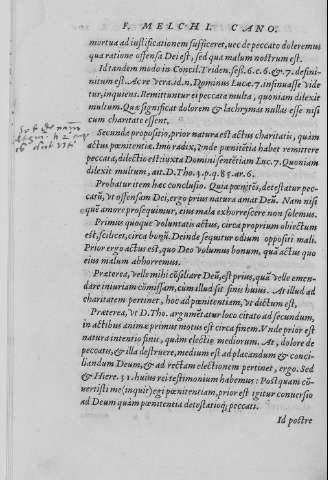 F. MELCHI. CANO.
mortua ad iustificationem sufficeret, nec de peccato doleremus
qua ratione offensa Dei est, sed qua malum nostrum est.
Id tandem modo in Concil. Triden. seß. 6. c. 6. & 7. definitum est. Ac re vera. id. n, Dominus Luc. 7. insinuasse videtur, inquiens. Remittuntur ei peccata multa, quoniam dilexit
multum. Quæ significat dolorem & lachrymas nullas esse nisi
cum charitate essent,
Secunda propositio, prior natura est actus charitatis, quàm
actus pœnitentiæ. Imo radix, unde pœnitētia habet remittere
peccata, dilectio est: iuxta Domini sentētiam Luc. 7. Quoniam
dilexit multum, aīt. D. Tho. 4. p. q. 85. ar. 6.
Probatur item hæc conclusio. Quia pœnitēs, detestatur peccatū, vt offensam Dei, ergo prius natura amat Deū. Nam nisi
quē amore prosequimur, eius mala exhorrescere non solemus.
Primus quoque voluntatis actus, circa proprium obiectum
est, scilicet, circa bonū. Deinde sequitur odium oppositi mali.
Prior ergo actus est, quo Deo volumus bonum, quā actus quo
eius malum abhorremus.
Præterea, velle mihi cōsiliare Deū, est prius, quā velle emendare iniuriam cōmissam, cum illud sit finis huius. At illud ad
charitatem pertinet, hoc ad pœnitentiam, vt dictum est,
Præterea, vt D. Tho. argumētatur loco citato ad secundum,
in actibus animæ primus motus est circa finem. Vnde prior est
natura intentio finis, quàm electio mediorum. At, dolore de
peccatis, & illa destruere, medium est ad placandum & conciliandum Deum, & ad rectam electionem pertinet, ergo. Sed
& Hiere. 31. huius rei testimonium habemus: Postquam cōuertisti me (inquit) egi pœnitentiam, prior est igitur conuersio
ad Deum quàm pœnitentia detestatioq; peccati.
Id postre